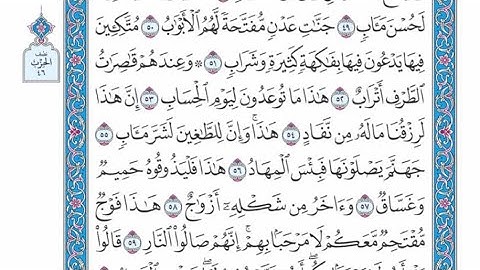 لَحُسْنَ مَـَٔابٍ ٤٩ جَنَّٰتِ عَدْنٍ مُّفَتَّحَةً لَّهُمُ ٱلْأَبْوَٰبُ ٥٠ مُتَّكِـِٔينَ
نصف
الحزب
٤٦
فِيهَا يَدْعُونَ فِيهَا بِفَٰكِهَةٍ كَثِيرَةٍ وَشَرَابٍ ٥١ ۞ وَعِندَهُمْ قَٰصِرَٰتُ
ٱلطَّرْفِ أَتْرَابٌ ٥٢ هَٰذَا مَا تُوعَدُونَ لِيَوْمِ ٱلْحِسَابِ ٥٣ إِنَّ هَٰذَا
لَرِزْقُنَا مَا لَهُۥ مِن نَّفَادٍ ٥٤ هَٰذَا ۚ وَإِنَّ لِلطَّٰغِينَ لَشَرَّ مَـَٔابٍ ٥٥
جَهَنَّمَ يَصْلَوْنَهَا فَبِئْسَ ٱلْمِهَادُ ٥٦ هَٰذَا فَلْيَذُوقُوهُ حَمِيمٌ
وَغَسَّاقٌ ٥٧ وَءَاخَرُ مِن شَكْلِهِۦٓ أَزْوَٰجٌ ٥٨ هَٰذَا فَوْجٌ
مُّقْتَحِمٌ مَّعَكُمْ لَا مَرْحَبًۢا بِهِمْ ۚ إِنَّهُمْ صَالُوا۟ ٱلنَّارِ ٥٩ قَالُوا۟